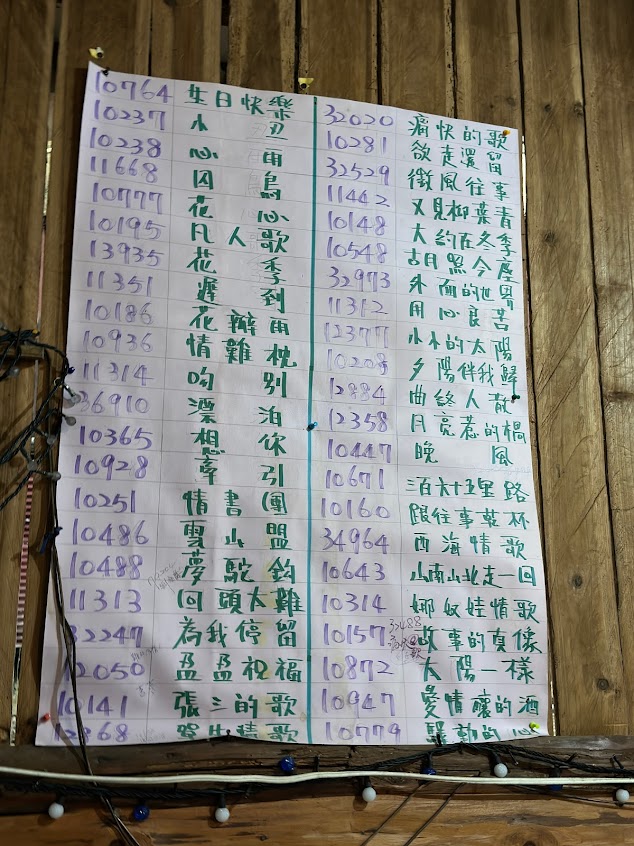 10764 生日快樂
10237 小丑
10238 心雨
11668 囚鳥
10777 花心
10195 凡人歌
13935 花季
11351 遲到
10186 花瓣雨
10936 情難枕
11314 吻別
36910 漂泊
10365 想你
10928 牽引
10251 情書團
10486 山盟
10488 夢駝鈴
11313 回頭太難
32247 為我停留
12050 盈盈祝福
10141 張三的歌
12368 情歌
32020 痛快的歌
10281 欲走還留
32529 微風往事
11442 又見柳葉青
10148 大約在冬季
10548 古月照今塵
32973 外面的世界
11312 用心良苦
12377 小小的太陽
10208 夕陽伴我歸
12884 曲終人散
12358 月亮惹的禍
10447 晚風
10671 三百六十五里路
10160 跟往事乾杯
34964 西海情歌
10643 山南山北走一回
10314 娜奴娃情歌
32488
10157 故事的真像
10872 太陽一樣
10947 愛情釀的酒
10779 驛動的心